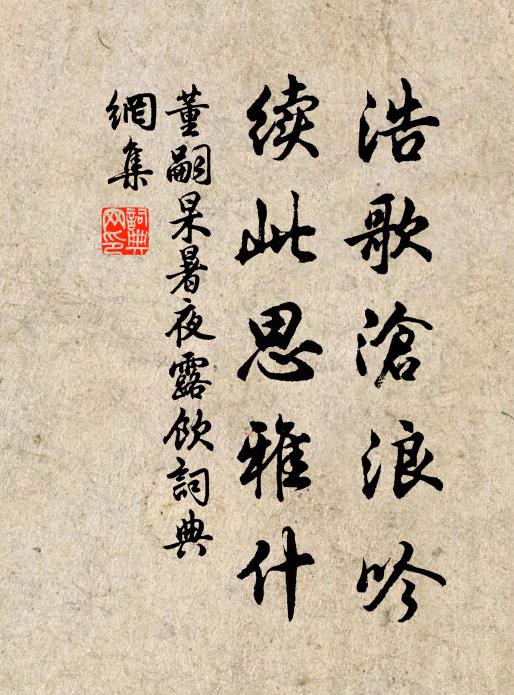 浩歌滄浪吟
续此思雅什
董嗣杲暑夜露飲詞典
網集
詞典
网印